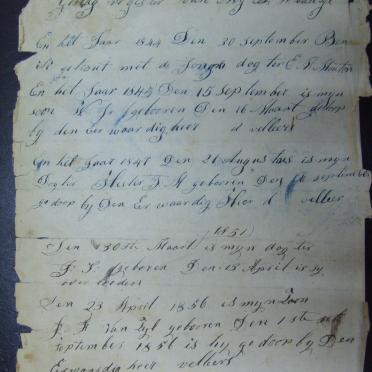 En het Jaar 1844 Den 20 September Ben
ik getrout met de Jonge dogter E. J. Mouton
En het Jaar 1845 Den 15 September is myn
soon W. J. geboren Den 16 Maart gedoop
by den Eer waardig heer d velbers
En het Jaar 1847 Den 21 Augustus is myn
Dogter Hester J M geboren Den 16 september
gedoop by Den Eer waardig Heer d velbers
(1851)
Den 30ste Maart is myn dogter
J. S. geboren Den 13 April is sy
over leeden
Den 23 April 1856 is myn Zoon
J. F. van Zyl geboren Den 1 ste
september 1856 is hy gedoop by Den
Eerwaardig heer velbers